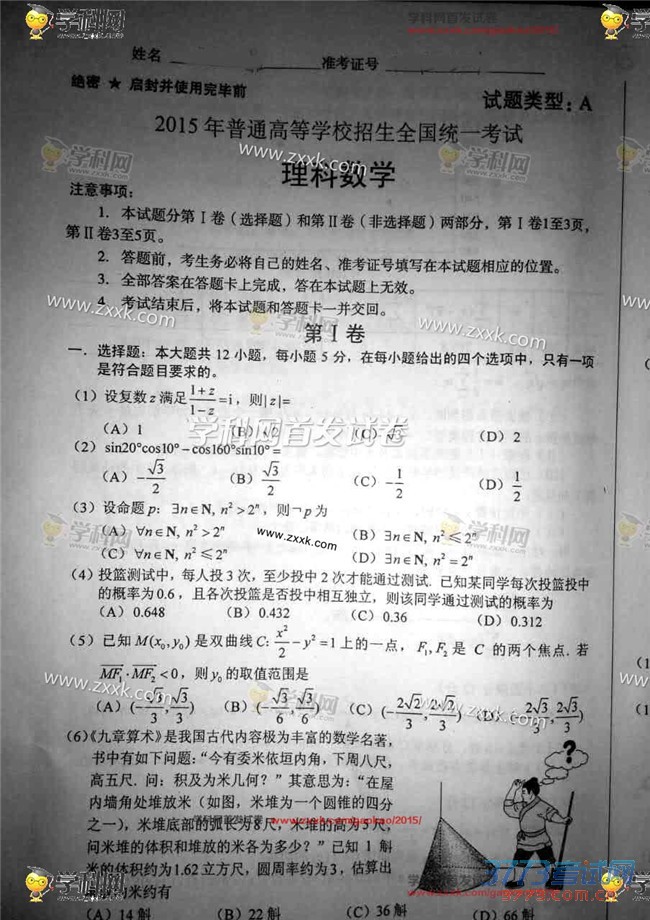 学科网首发试卷
学科网
www.zxxk.com
姓名 准考证号
绝密 ★ 启封并使用完毕前
试题类型：A
2015 年普通高等学校招生全国统一考试
理科数学
注意事项：
1. 本试题分第Ⅰ卷（选择题）和第Ⅱ卷（非选择题）两部分，第Ⅰ卷1至3页，
第Ⅱ卷3至5页。
2. 答题前，考生务必将自己的姓名、准考证号填写在本试题相应的位置。
3. 全部答案在答题卡上完成，答在本试题上无效。
4. 考试结束后，将本试题和答题卡一并交回。
第Ⅰ卷
一. 选择题：本大题共 12 小题，每小题 5 分，在每小题给出的四个选项中，只有一项
是符合题目要求的。
(1) 设复数 z 满足 (1+z)/(1-z) = i，则|z|=
(A) 1 (B) √2 (C) √3 (D) 2
学科网首发试卷
(2) sin20°cos10° − cos160°sin10° =
(A) −√3/2 (B) √3/2 (C) −1/2 (D) 1/2
(3) 设命题 p：∃n∈N, n²>2ⁿ，则¬p 为
(A) ∀n∈N, n²>2ⁿ (B) ∃n∈N, n²≤2ⁿ
(C) ∀n∈N, n²≤2ⁿ (D) ∃n∈N, n²=2ⁿ
(4) 投篮测试中，每人投 3 次，至少投中 2 次才能通过测试. 已知某同学每次投篮投中
的概率为 0.6，且各次投篮是否投中相互独立，则该同学通过测试的概率为
(A) 0.648 (B) 0.432 (C) 0.36 (D) 0.312
(5) 已知 M(x₀,y₀) 是双曲线 C: x²/2 − y² = 1 上的一点，F₁,F₂ 是 C 的两个焦点. 若
MF₁·MF₂<0，则 y₀ 的取值范围是
(A) (−√3/3, √3/3) (B) (−√3/6, √3/6) (C) (−2√2/3, 2√2/3) (D) (−2√3/3, 2√3/3)
(6)《九章算术》是我国古代内容极为丰富的数学名著，
书中有如下问题：“今有委米依垣内角，下周八尺，
高五尺. 问：积及为米几何？”其意思为：“在屋
内墙角处堆放米（如图，米堆为一个圆锥的四分
之一），米堆底部的弧长为8尺，米堆的高为5尺，
问米堆的体积和堆放的米各为多少？”已知 1 斛
米的体积约为 1.62 立方尺，圆周率约为 3，估算出
米约有
(A) 14 斛 (B) 22 斛 (C) 36 斛 (D) 66 斛